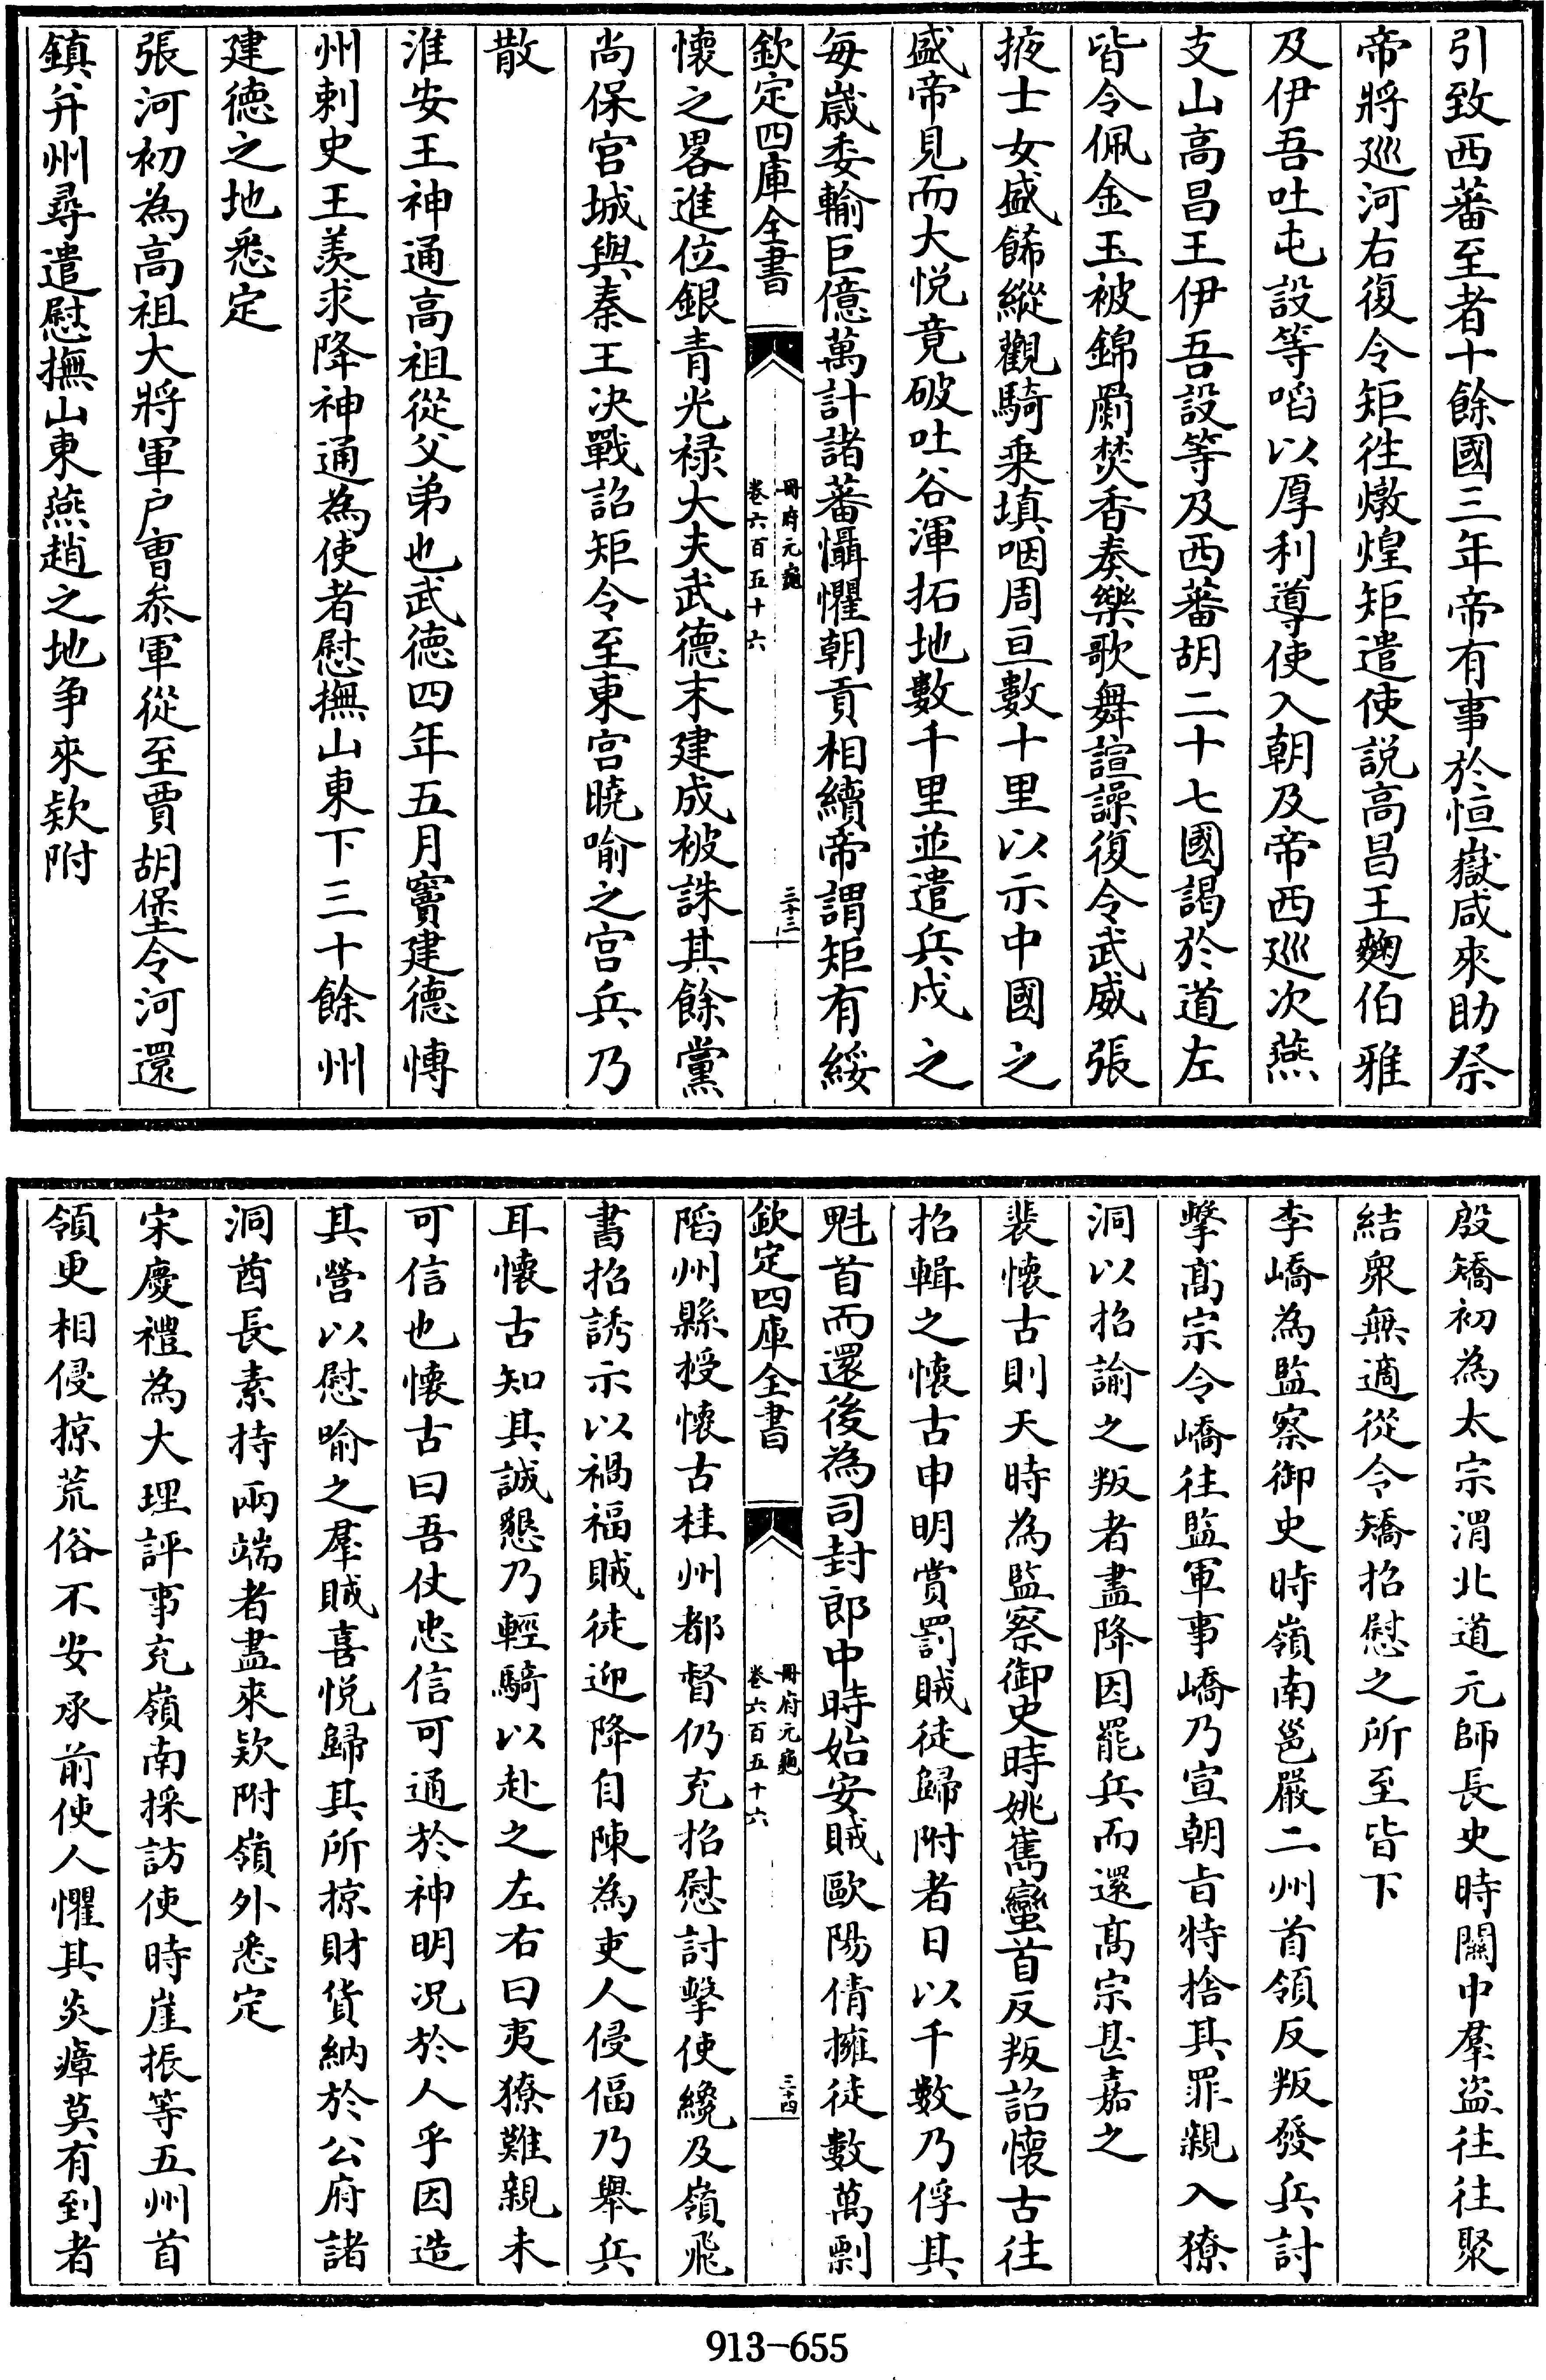 引致西蕃至者十餘國三年帝有事於恒嶽咸來助祭
帝將廵河右復令矩徃燉煌矩遣使説高昌王麴伯雅
及伊吾吐屯設等啗以厚利導使入朝及帝西廵次燕
支山高昌王伊吾設等及西蕃胡二十七國謁於道左
皆令佩金玉被錦罽焚香奏樂歌舞諠譟復令武威張
掖士女盛餙縱觀騎乗填咽周亘數十里以示中國之
盛帝見而大悦竟破吐谷渾拓地數千里並遣兵戍之
每嵗委輸巨億萬計諸蕃懾懼朝貢相續帝謂矩有綏
欽定四庫全書
冊府元龜
卷六百五十六
三十三
懷之畧進位銀青光禄大夫武德末建成被誅其餘黨
尚保宫城與秦王决戰詔矩令至東宫曉喻之宫兵乃
散
淮安王神通高祖從父弟也武德四年五月竇建德慱
州刺史王羨求降神通為使者慰撫山東下三十餘州
建德之地悉定
張河初為高祖大將軍户曹叅軍從至賈胡堡令河還
鎮并州尋遣慰撫山東燕趙之地争來欵附
殷矯初為太宗渭北道元師長史時關中羣盗往往聚
結衆無適從令矯招慰之所至皆下
李嶠為監察御史時嶺南邕嚴二州首領反叛發兵討
擊髙宗令嶠往監軍事嶠乃宣朝旨特捨其罪親入獠
洞以招諭之叛者盡降因罷兵而還髙宗甚嘉之
裴懷古則天時為監察御史時姚嶲蠻首反叛詔懷古往
招輯之懷古申明賞罰賊徒歸附者日以千數乃俘其
魁首而還後為司封郎中時始安賊歐陽倩擁徒數萬剽
欽定四庫全書
冊府元龜
卷六百五十六
三十四
陷州縣授懷古桂州都督仍充招慰討擊使纔及嶺飛
書招誘示以禍福賊徒迎降自陳為吏人侵偪乃舉兵
耳懷古知其誠懇乃輕騎以赴之左右曰夷獠難親未
可信也懷古曰吾仗忠信可通於神明况於人乎因造
其營以慰喻之羣賊喜悦歸其所掠財貨納於公府諸
洞酋長素持兩端者盡來欵附嶺外悉定
宋慶禮為大理評事充嶺南採訪使時崖振等五州首
領更相侵掠荒俗不安承前使人懼其炎瘴莫有到者
913-655